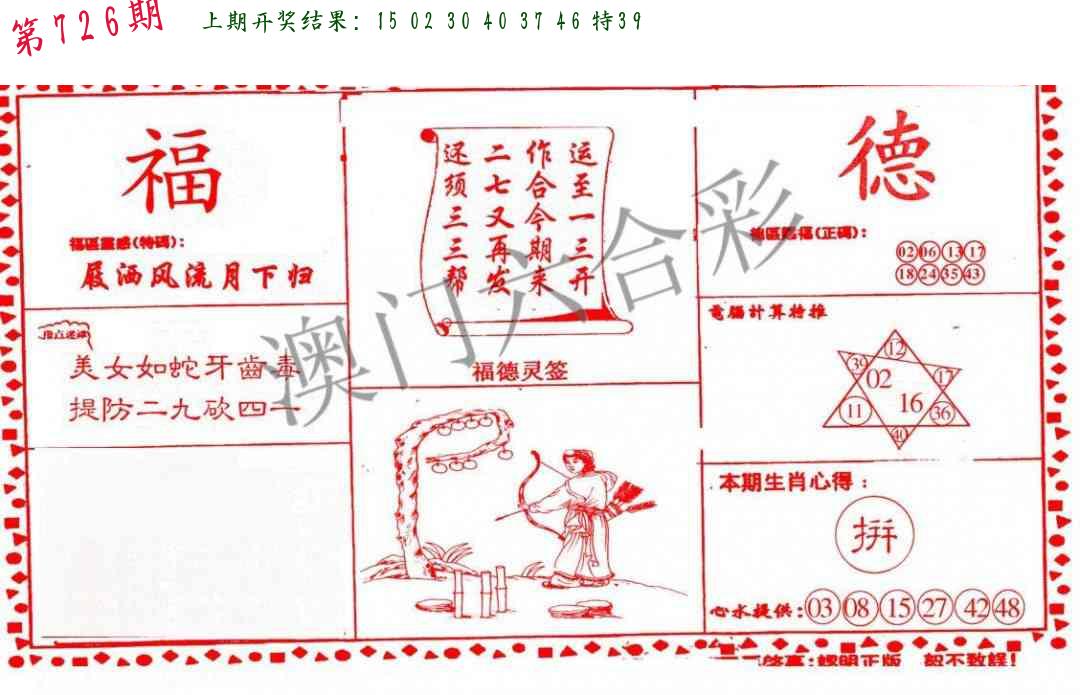 第726期
上期开奖结果：15 02 30 40 37 46 特39
福
福區靈感(特碼)：
屐洒风流月下归
美女如蛇牙齒毒
提防二九砍四一
运至一三开
作合今期来
二七又再发
还须三三帮
福德灵签
德
02 06 13 17
18 24 35 43
電腦計算特推
12
39 02 17
11 16 36
40
本期生肖心得：
拼
心水提供：03 08 15 27 42 48
澳门六合彩